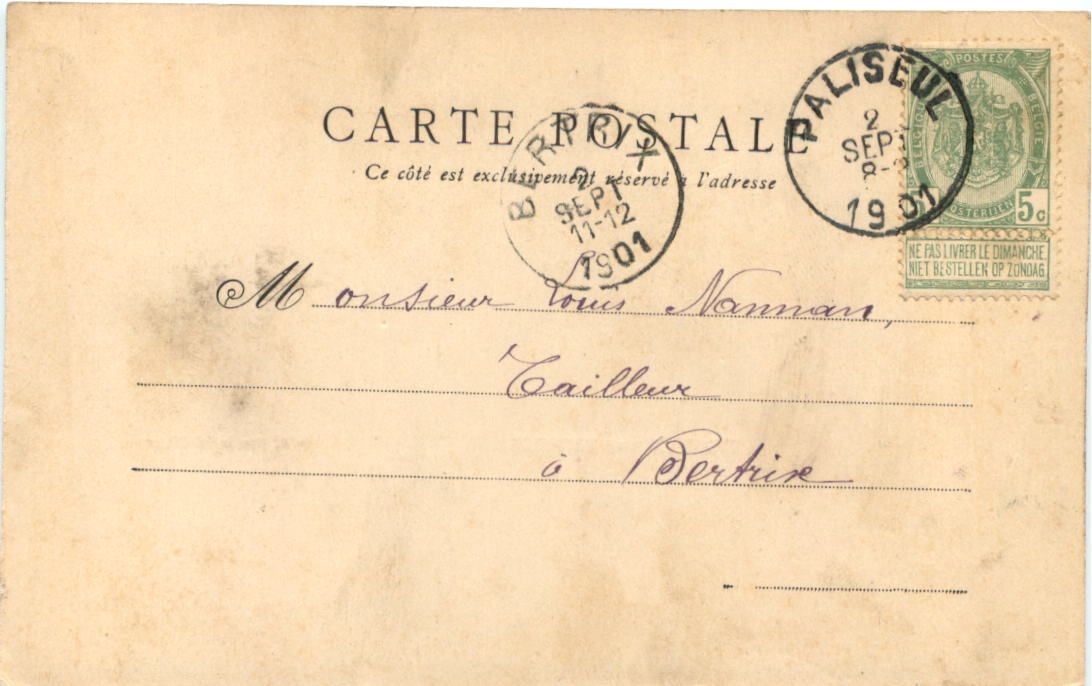 CARTE POSTALE
Ce côté est exclusivement réservé à l'adresse
BERTRIX
2
SEPT
11-12
1901
PALISEUL
2
SEPT
1901
POSTES
BELGIQUE
BELGIË
POSTERIJEN
5 c
NE PAS LIVRER LE DIMANCHE
NIET BESTELLEN OP ZONDAG
Monsieur Louis Nannan,
Tailleur
à Bertrix